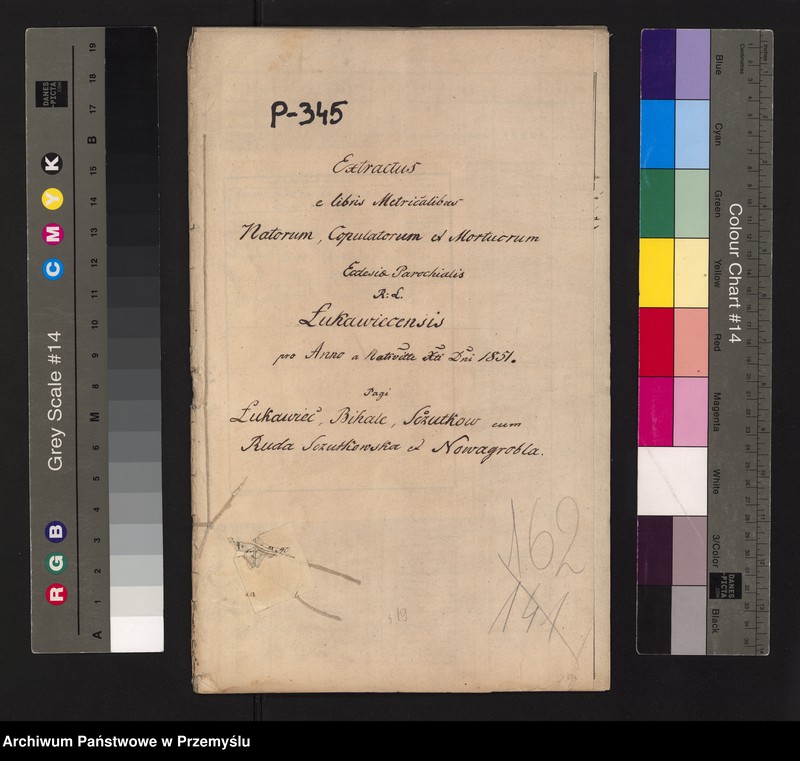 P-345
Extractus
e libris Metricalibus
Natorum, Copulatorum et Mortuorum
Ecclesiæ Parochialis
R: L.
Łukawiecensis
pro Anno a Nativitte Xti Dni 1851.
Pagi
Łukawieć, Bihale, Sczutkow cum
Ruda Sczutkowska et Nowagrobla.
162
141
Grey Scale #14
DANES
-PICTA
.COM
A 1 2 3 4 5 6 M 8 9 10 11 12 13 14 15 B 17 18 19
R G B
C M Y K
Colour Chart #14
Blue
Cyan
Green
Yellow
Red
Magenta
White
3/Color
Black
Centimetres
Inches
DANES
-PICTA
.COM
Archiwum Państwowe w Przemyślu